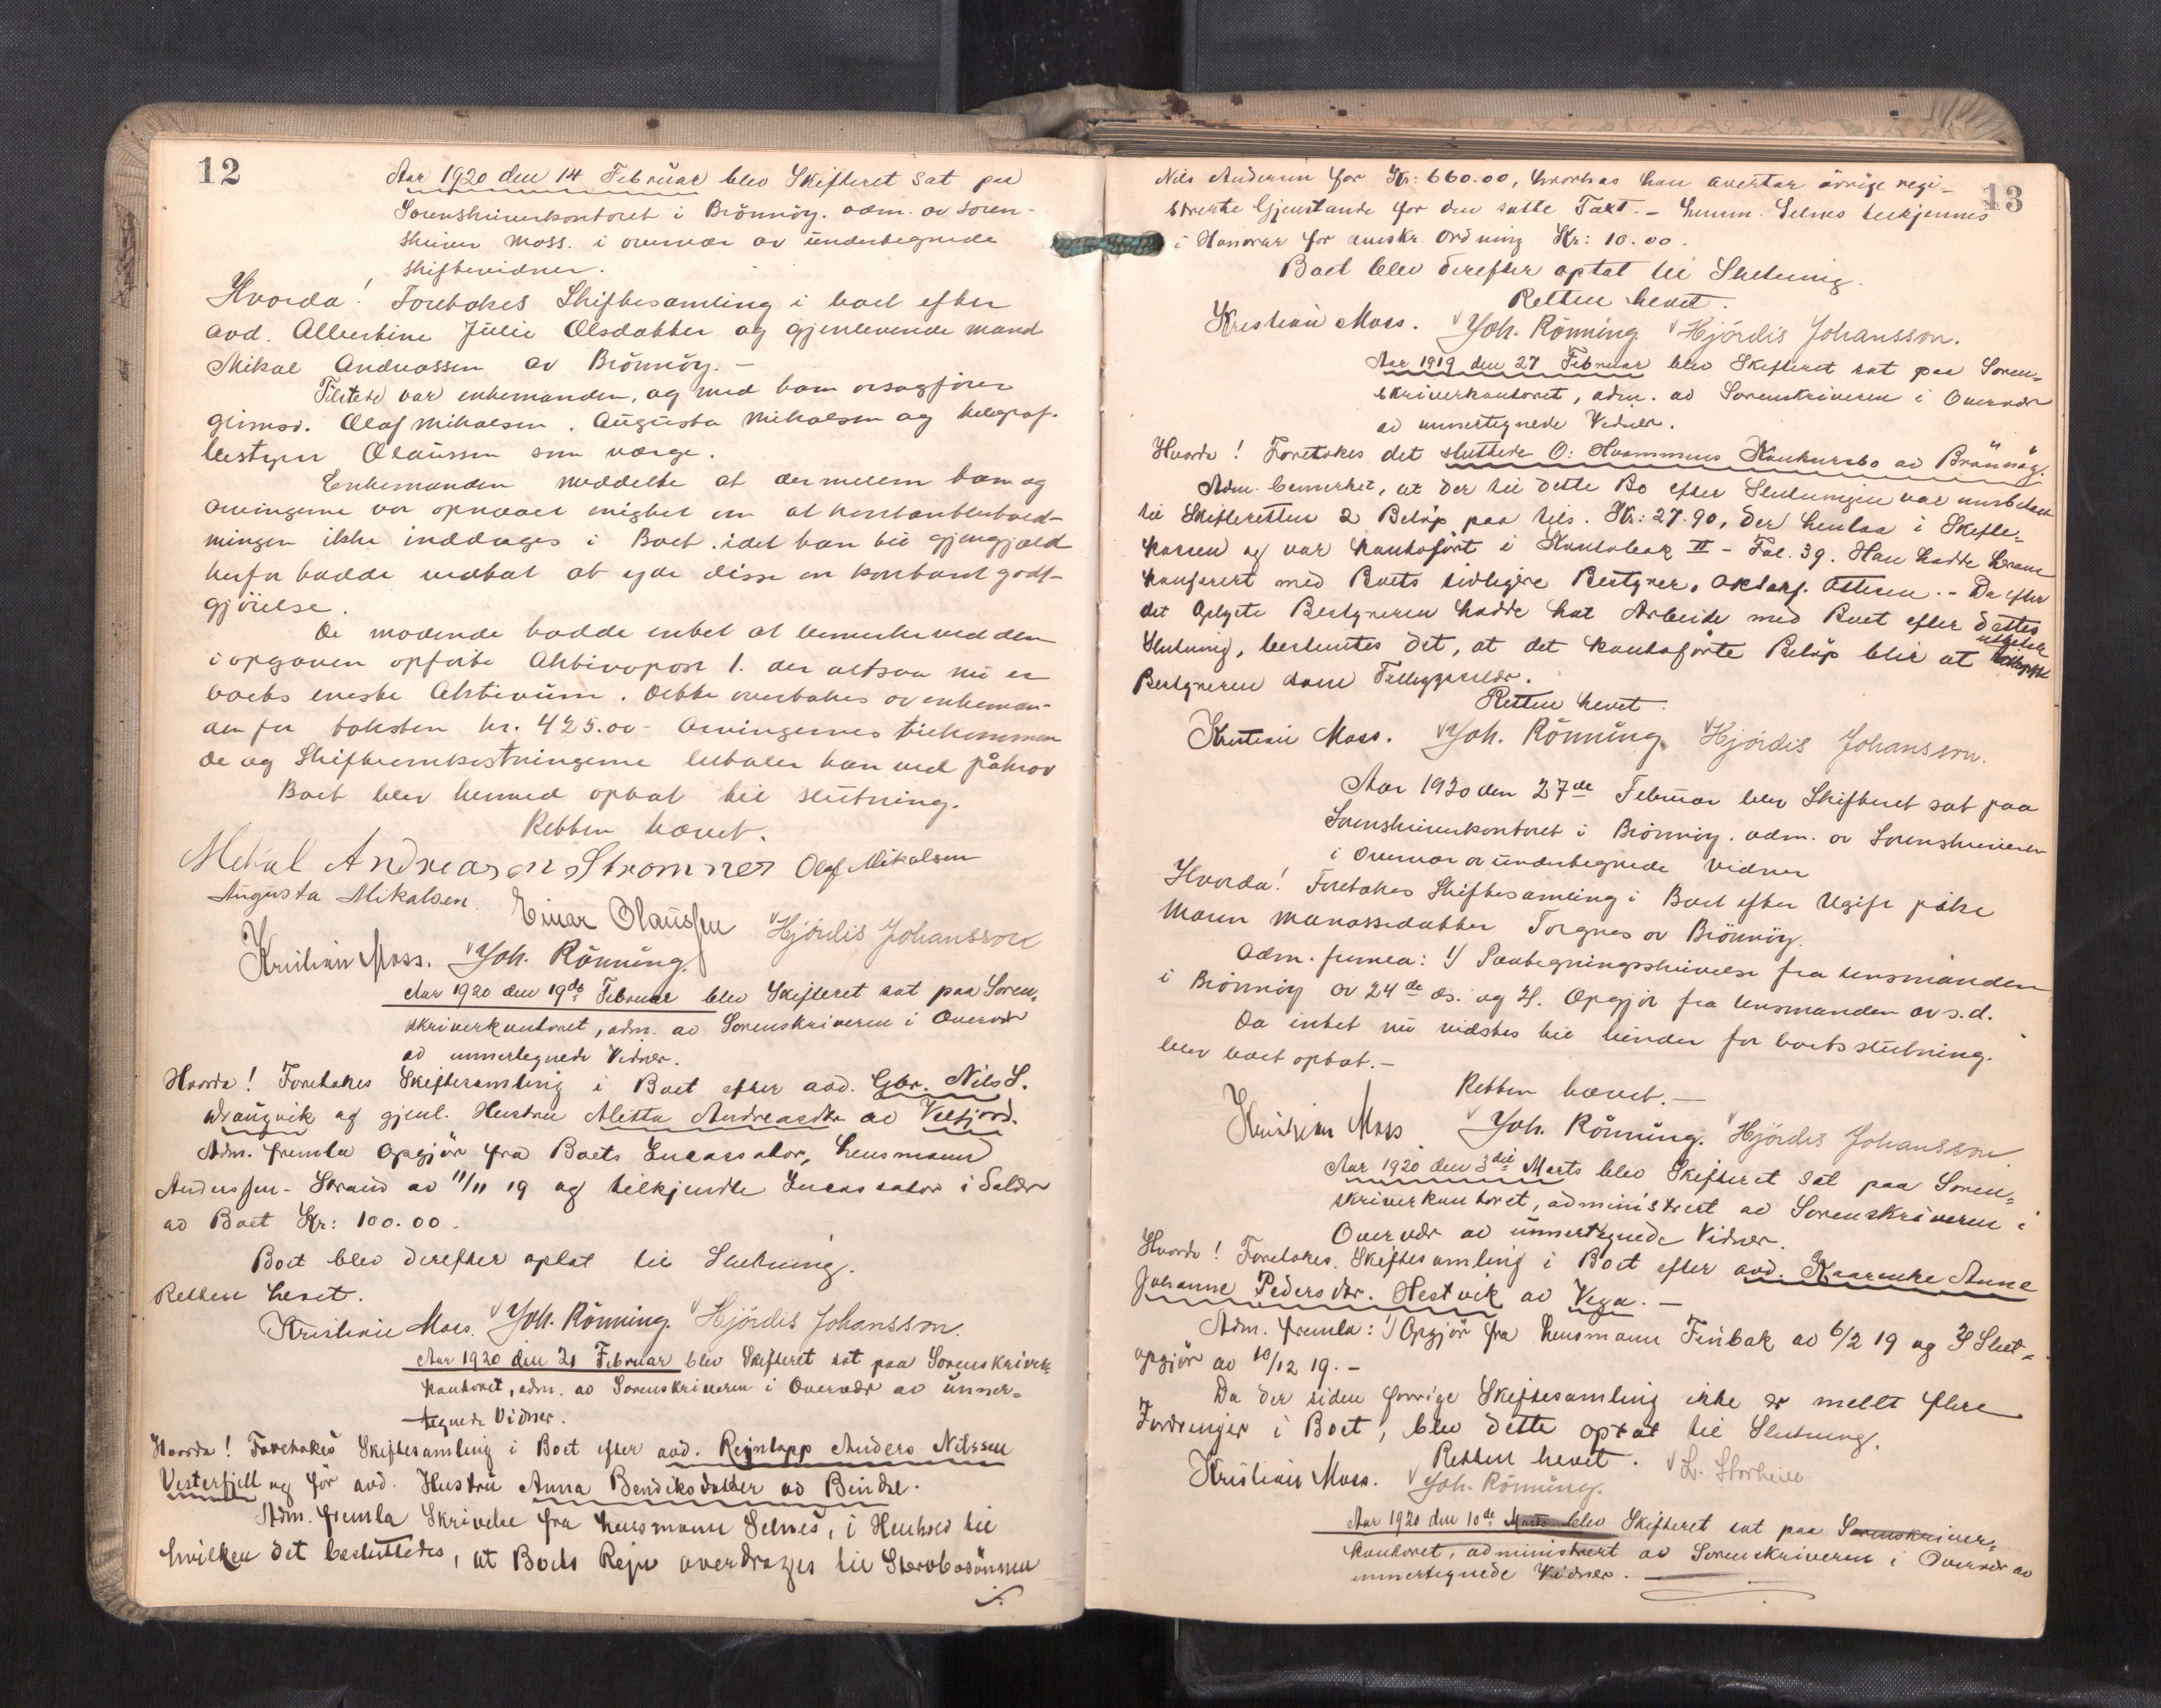 12
Aar 1920 den 14 Februar blev Skifteret sat paa
Sorenskriverkontoret i Brönnöy. adm. av soren-
skriver Moss. i overvær av undertegnede
skiftevidner.
Hvorda! Foretokes Skiftesamling i boet efter
avd. Albertine Julie Olsdatter og gjenlevende mand
Mikal Andreassen av Brönnöy. -
Tilstede var enkemanden, og med ham orsagfører
Olaf Mikalsen. Augusta Mikalsen og telegraf-
bestyrer Olaussen som værge.
Enkemanden meddelte at der mellem ham og
arvingerne var opnaaet enighet om at
ikke inddrages i Boet. idet han til gjengjæld
herfor hadde vedtat at yde disse en kontant godt-
gjörelse.
De mødende hadde intet at bemerke ved den
i opgaven opførte Aktivapost 1. der altsaa nu er
boets eneste Aktivum. Dette overtokes av enkeman-
den for taksten kr. 425.00 - Arvingernes tilkommen
de og Skifteomkostningerne betaler han ved påkrav
Boet blev hermed optat til slutning.
Retten hævet.
Mekal Andreasen Strømnes Olaf Mikalsen
Augusta Mikalsen. Einar Olaussen Hjördis Johansson
Kristian Moss. Joh. Rönning.
Aar 1920 den 19de Februar blev Skifteret sat paa Soren-
skriverkontoret, adm. av Sorenskriveren i Overvær
av unnertegnede Vidner.
Hvorda! Foretokes Skiftesamling i Boet efter avd. Gbr. Nils S.
og gjenl. Hustru Aletta Andreasdtr av Velfjord.
Adm. fremla Opgjör fra Boets Incassator, Lensmann
Anderssen-Strand av 11/11 19 og tilkjendte Incassator i Salær
av Boet Kr: 100.00.
Boet blev derefter optat til Slutning.
Retten hevet.
Kristian Moss. Joh. Rönning. Hjördis Johansson.
Aar 1920 den 21 Februar blev Skifteret sat paa Sorenskriver-
kontoret, adm. av Sorenskriveren i Overvær av unner-
tegnede Vidner.
Hvorda! Foretokes Skiftesamling i Boet efter avd. Rejnlapp Anders Nilssen
Vesterfjell og før avd. Hustru Anna Bendiksdatter av Bindal.
Adm. fremla Skrivelse fra Lensmann Selnes, i Henhold til
hvilken det besluttedes, at Boets Rejn overdrages til Stervbosönnen
13
Nils Andersen for Kr: 660.00, hvorhos han overtar övrige regi-
strerte Gjenstande for den satte Takst. - Lensm. Selnes tilkjennes
i Honorar for ønskr. Ordning Kr: 10.00.
Boet blev derefter optat til Slutning.
Retten hevet.
Kristian Moss. Joh. Rönning. Hjördis Johansson.
Aar 1919 den 27 Februar blev Skifteret sat paa Soren-
skriverkontoret, adm. av Sorenskriveren i Overvær
av unnertegnede Vidner.
Hvorda! Foretokes det sluttede O: Hvammens Konkursbo av Brönnöy.
Adm. bemerket, at der til dette Bo efter Slutningen var innbetalt
til Skifteretten 2 Beløp paa tils. Kr: 27.90, der henlaa i Skifte-
kassen og var kontoført i Kontobok II - Fol. 39. Han hadde herom
konferert med Boets tidligere Bestyrer, Ottesen. - Da efter
det Oplyste Bestyreren hadde hat Arbeide med Boet efter dettes
Slutning, besluttes det, at det kontoførte Beløp blir at utbetale
Bestyreren som Tilleggssalær.
Retten hevet.
Kristian Moss. Joh. Rönning. Hjördis Johansson.
Aar 1920 den 27de Februar blev Skifteret sat paa
Sorenskriverkontoret i Brönnöy. adm. av Sorenskriveren
i Overvær av undertegnede Vidner
Hvorda! Foretokes Skiftesamling i Boet efter Ugift pike
Maren Manassedatter Torgnes av Brönnöy.
Adm. fremla: 1) Paategningsskrivelse fra lensmanden
i Brönnöy av 24de ds. og 2). Opgjör fra lensmanden av s.d.
Da intet nu vidstes til hinder for boets slutning.
blev boet optat. -
Retten hævet. -
Kristian Moss. Joh. Rönning. Hjördis Johansson
Aar 1920 den 3die Marts blev Skifteret sat paa Soren-
skriverkontoret, administrert av Sorenskriveren i
Overvær av unnertegnede Vidner.
Hvorda! Foretokes Skiftesamling i Boet efter avd. Anne
Johanne Pedersdtr. Hestvik av Vega. -
Adm. fremla: 1) Opgjör fra Lensmann Finbak av 6/2 19 og 2) Slut-
opgjör av 10/12 19. -
Da der siden forrige Skiftesamling ikke er meldt flere
Fordringer i Boet, blev dette optat til Slutning.
Retten hevet.
Kristian Moss. Joh. Rönning. L. Storheil
Aar 1920 den 10de Marts blev Skifteret sat paa Sorenskriver-
kontoret, administrert av Sorenskriveren i Overvær av
unnertegnede Vidner.